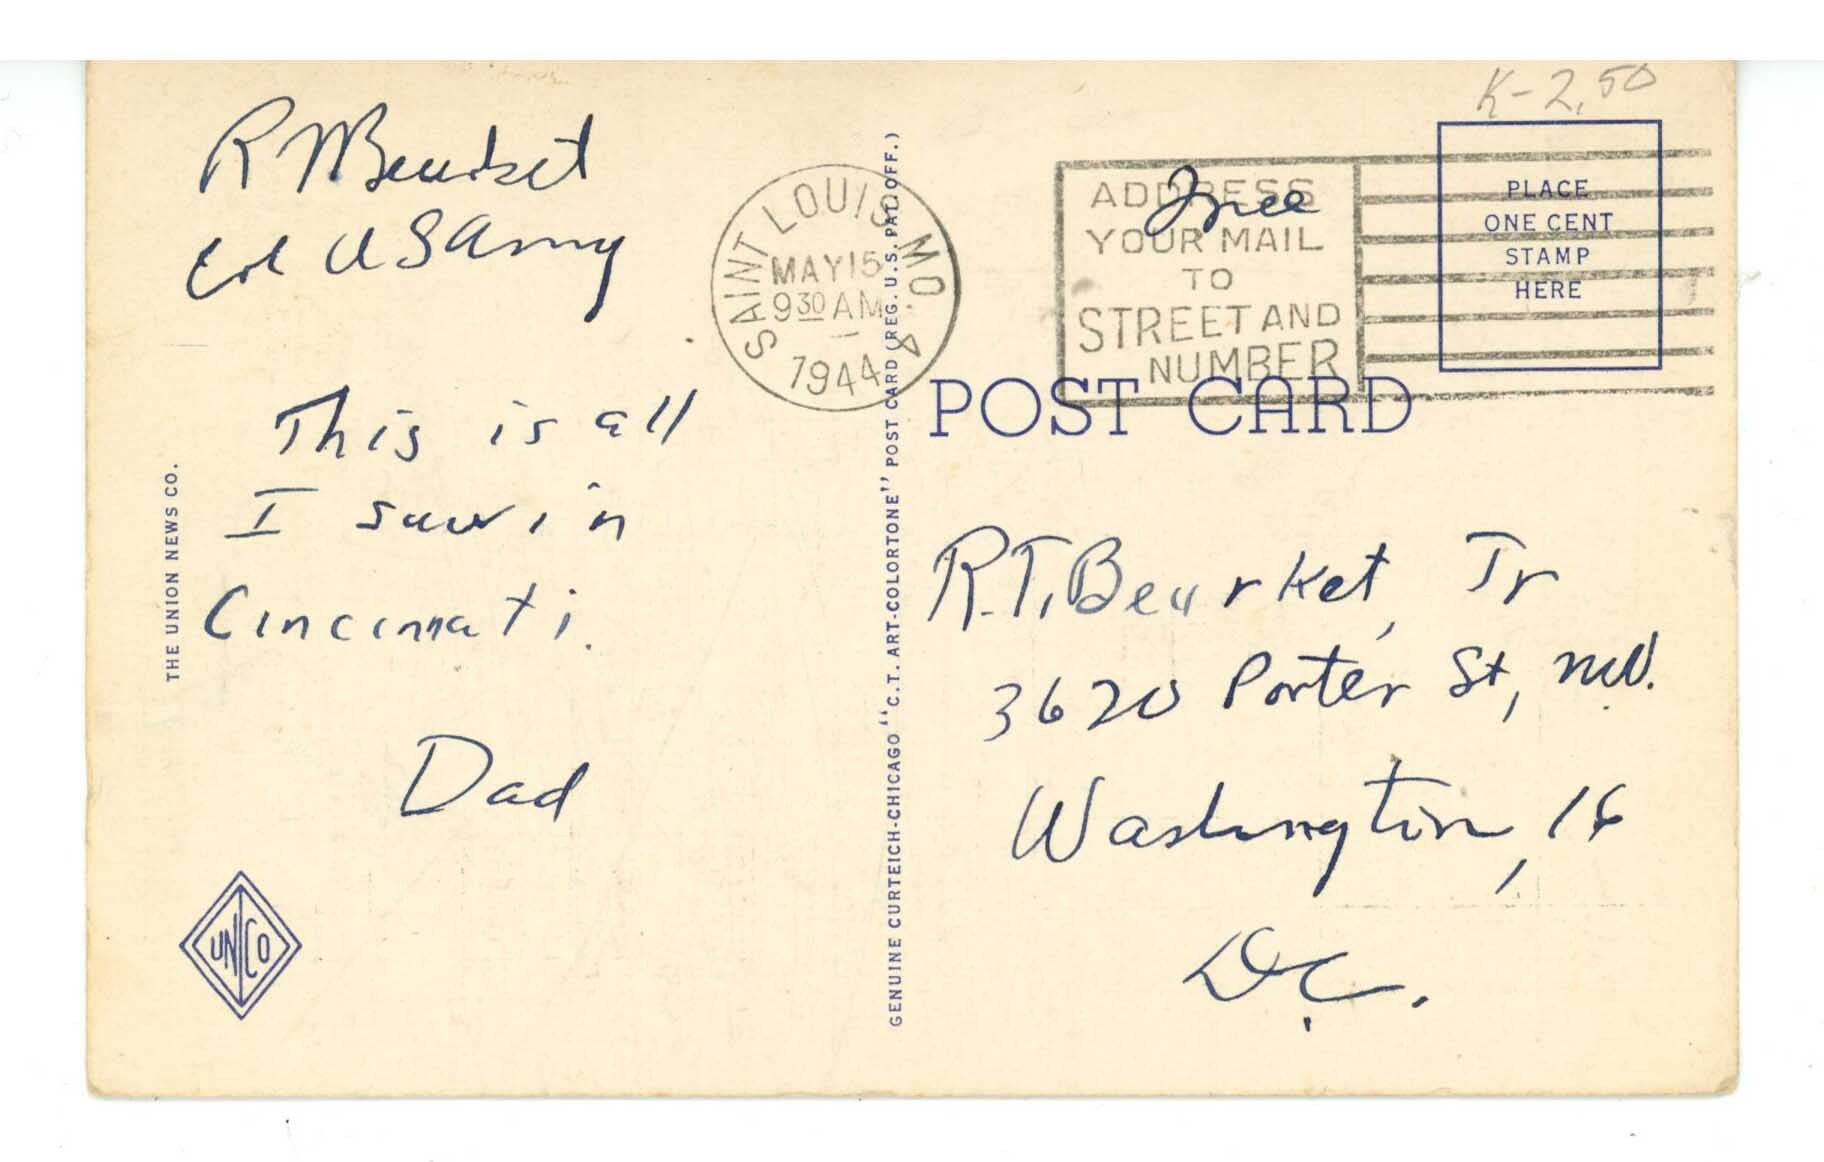 K-2.50
Col US Army
This is all
I saw in
Cincinnati.
Dad
THE UNION NEWS CO.
UNCO
SAINT LOUIS, MO. 4
MAY 15
9 30 AM
1944
GENUINE CURTEICH-CHICAGO "C.T. ART-COLORTONE" POST CARD (REG. U.S. PAT. OFF.)
Free
ADDRESS
YOUR MAIL
TO
STREET AND
NUMBER
PLACE
ONE CENT
STAMP
HERE
POST CARD
R.T. Beurket, Jr
3620 Porter St, NW.
Washington, 16
D.C.